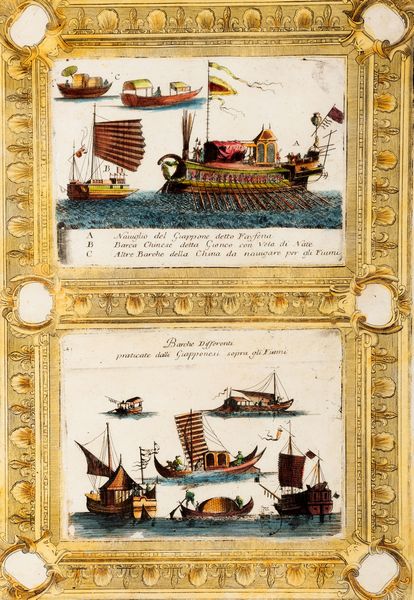 C
B
A
A Naviglio del Giappone detto Fayfena
B Barca Chinese detta Cionco con Vela di Nate
C Altre Barche della China da navigare per gli Fiumi
Barche Differenti
praticate dalli Giapponesi sopra gli Fiumi